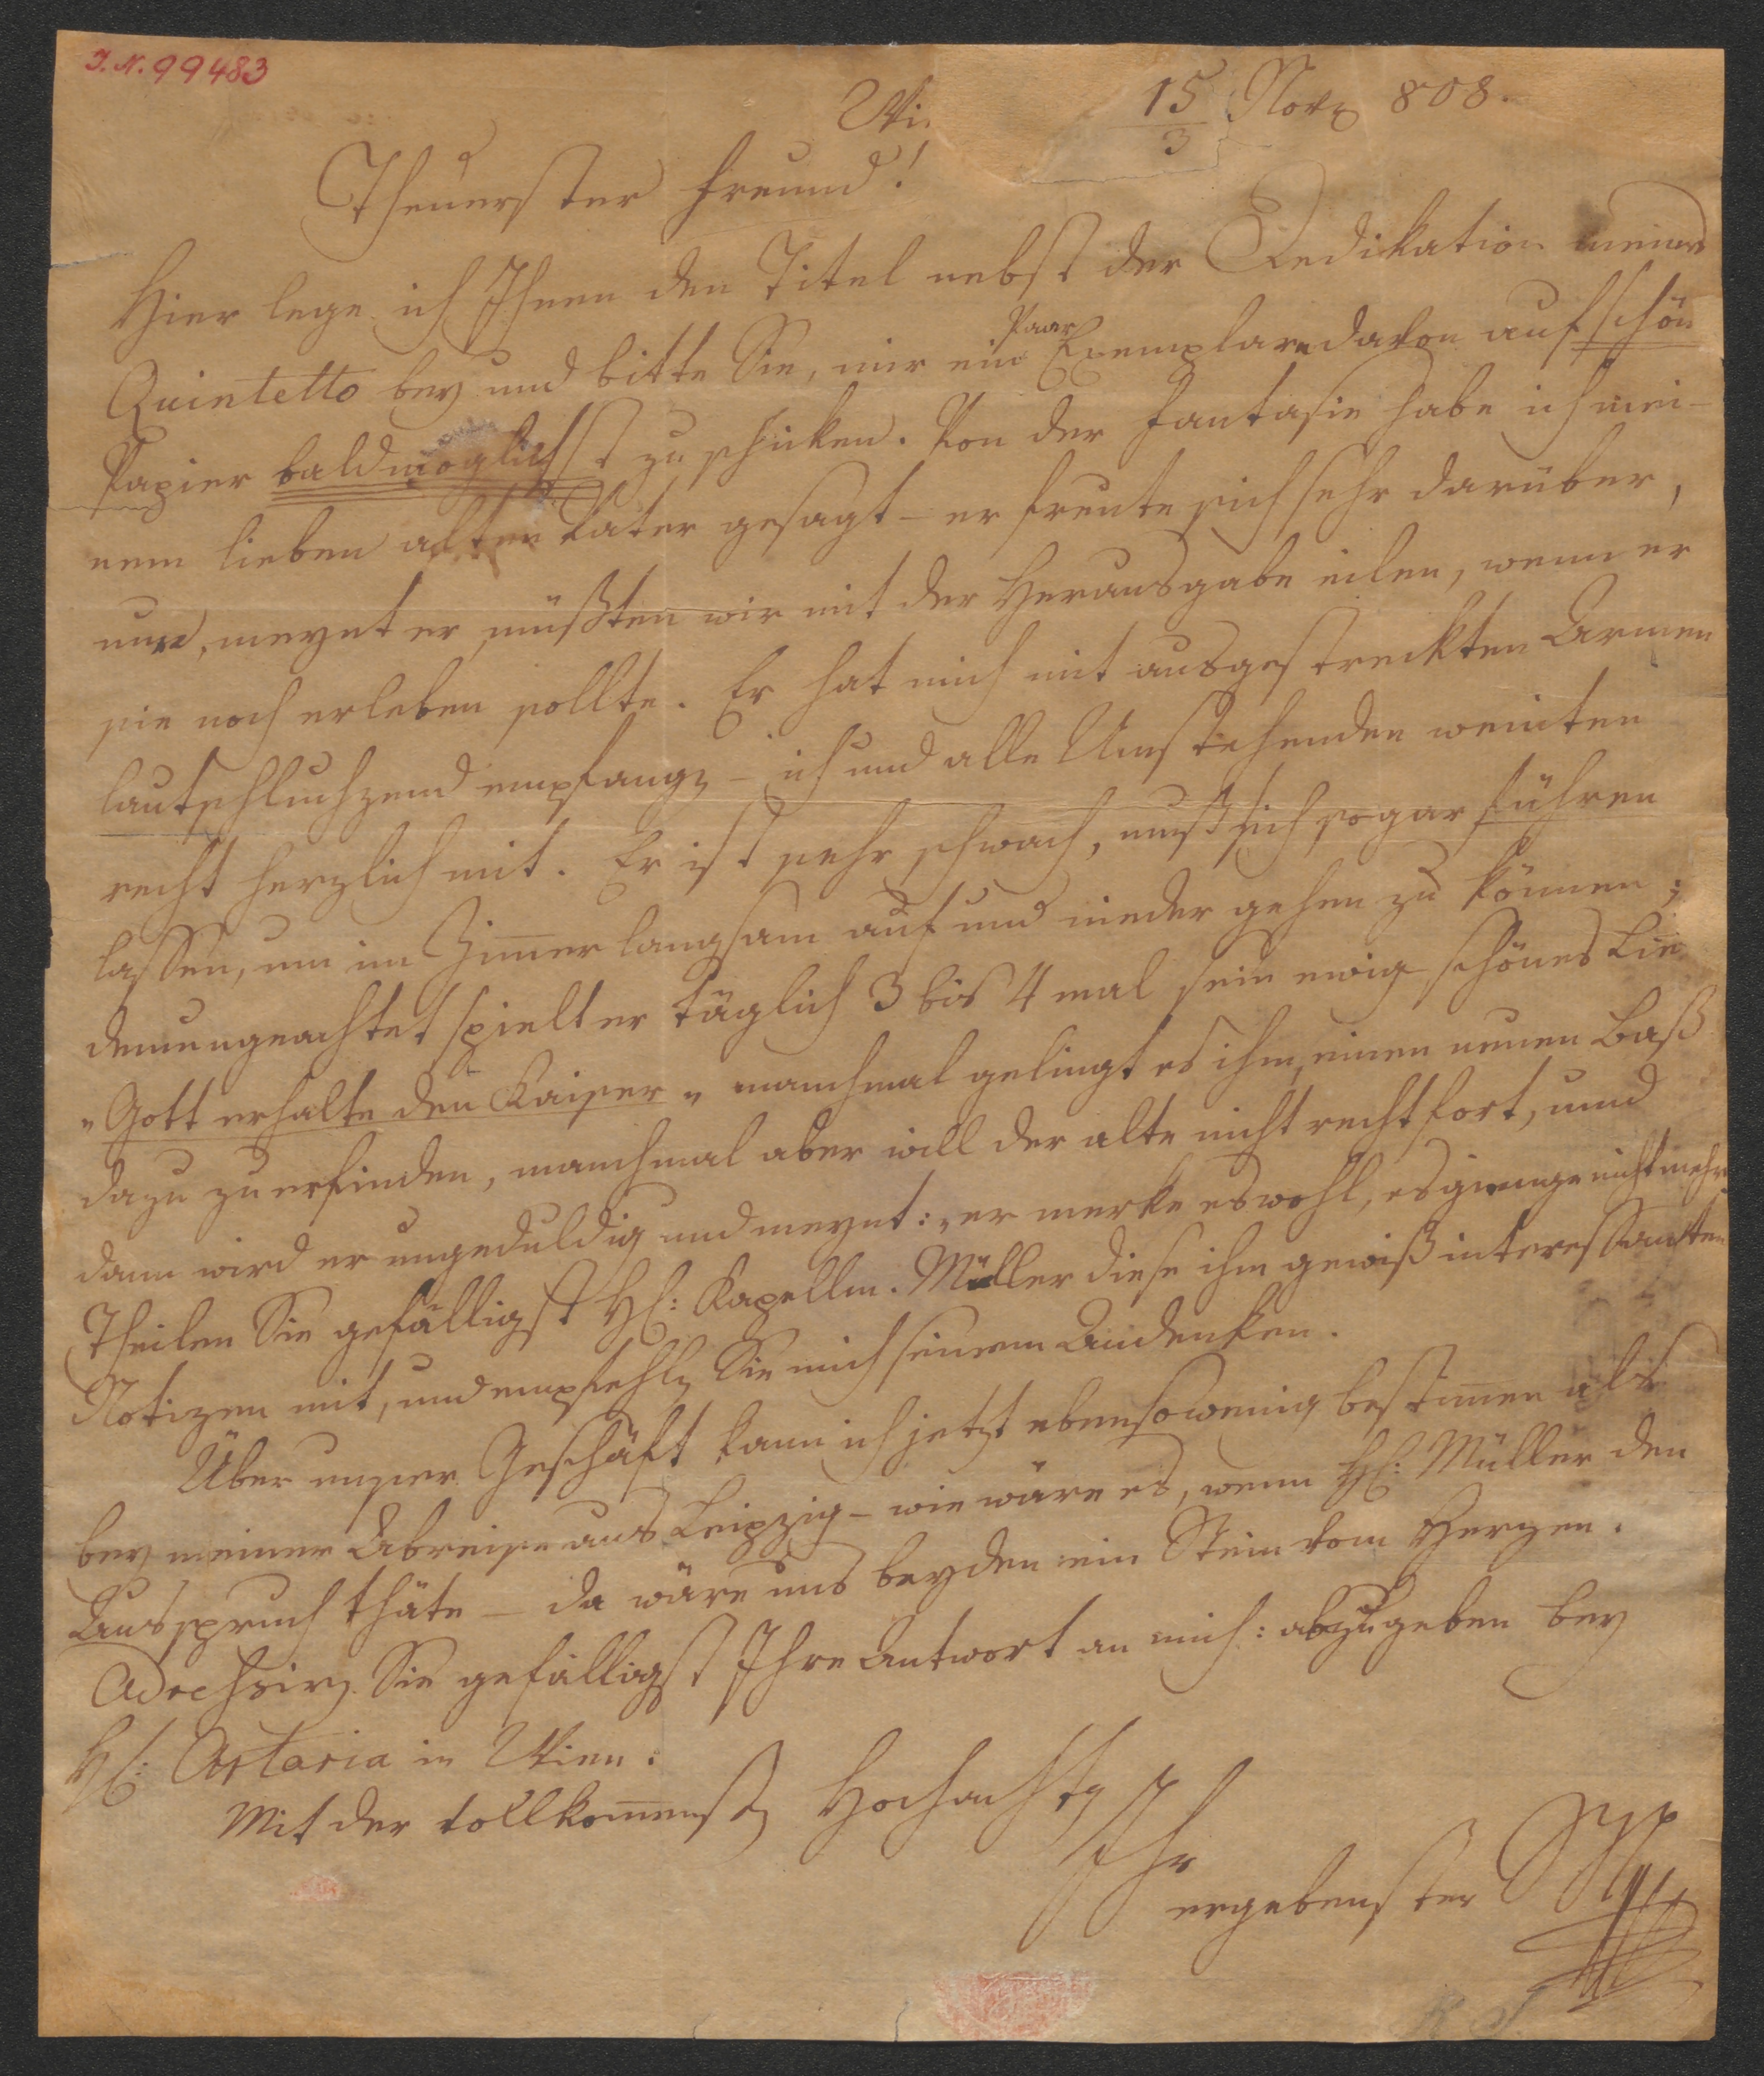 I.N. 99483
Wi 15/3 Nov 808.
Theuerster Freund!
Hier lege ich Ihnen den Titel nebst der Dedikation meines
Quintetto bey und bitte Sie, mir ein Paar Exemplare davon auf schön
Papier baldmöglichst zu schicken. Von der Fantasie habe ich mei-
nem lieben alten Vater gesagt – er freute sich sehr darüber,
nur, meynt er müßten wir mit der Herausgabe eilen, wenn er
sie noch erleben sollte. Er hat mich mit ausgestreckten Armen
lautschluchzend empfangen – ich und alle Umstehenden weinten
recht herzlich mit. Er ist sehr schwach, muß sich sogar führen
lassen, um im Zim̄er langsam auf und nieder gehen zu können;
demungeachtet spielt er täglich 3 bis 4 mal sein ewig schönes Lie
„Gott erhalte den Kaiser„ manchmal gelingt es ihm, einen neuen Baß
dazu zu erfinden, manchmal aber will der alte nicht recht fort, und
dann wird er ungeduldig und meynt: „er merke es wohl, es gienge nicht mehr.
Theilen Sie gefälligst H: Kapellm. Müller diese ihm gewiß interessanten
Notizen mit, und empfehlen Sie mich seinem Andenken.
Über unser Geschäft kann ich jetzt ebensowenig bestim̄en als
bey meiner Abreise aus Leipzig – wie wäre es, wenn H: Müller den
Ausspruch thäte – da wäre uns beyden ein Stein vom Herzen.
Adressiren Sie gefälligst Ihre Antwort an mich: abzugeben bey
H: Artaria in Wien.
Mit der vollkom̄ensten Hochachtg
Ihr
ergebenster